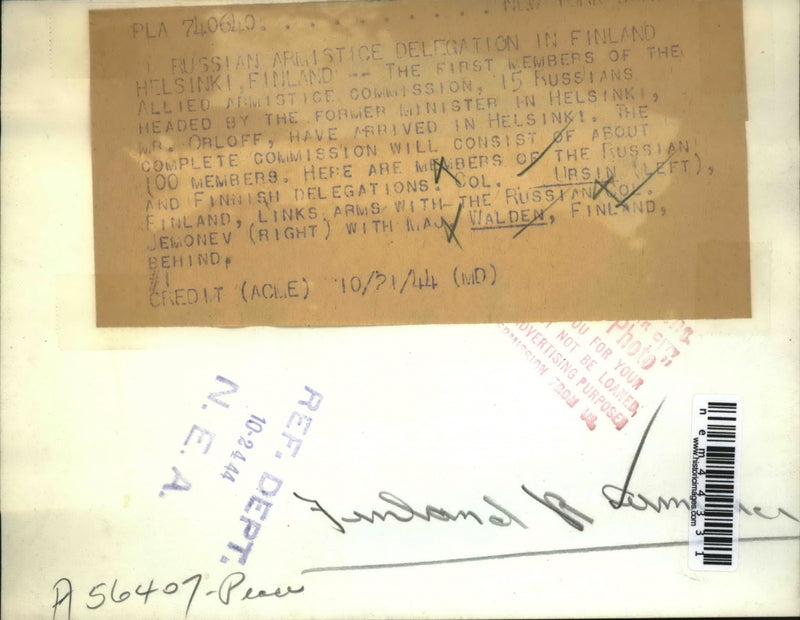 PLA 740640. . . . . . . . . . . NEW YORK
RUSSIAN ARMISTICE DELEGATION IN FINLAND
HELSINKI, FINLAND -- THE FIRST MEMBERS OF THE
ALLIED ARMISTICE COMMISSION, 15 RUSSIANS
HEADED BY THE FORMER MINISTER IN HELSINKI,
MR. ORLOFF, HAVE ARRIVED IN HELSINKI. THE
COMPLETE COMMISSION WILL CONSIST OF ABOUT
100 MEMBERS. HERE ARE MEMBERS OF THE RUSSIAN
AND FINNISH DELEGATIONS. COL. URSIN (LEFT),
FINLAND, LINKS ARMS WITH THE RUSSIAN COL.
JEMONEV (RIGHT) WITH MAJ. WALDEN, FINLAND,
BEHIND.
#1
CREDIT (ACME) 10/21/44 (MD)
Photo
YOU FOR YOUR
NOT BE LOANED,
ADVERTISING PURPOSES
PERMISSION FROM US
REF. DEPT.
10-24 44
N. E. A.
Finland &
A 56407-Peace
nem44331
www.historicimages.com